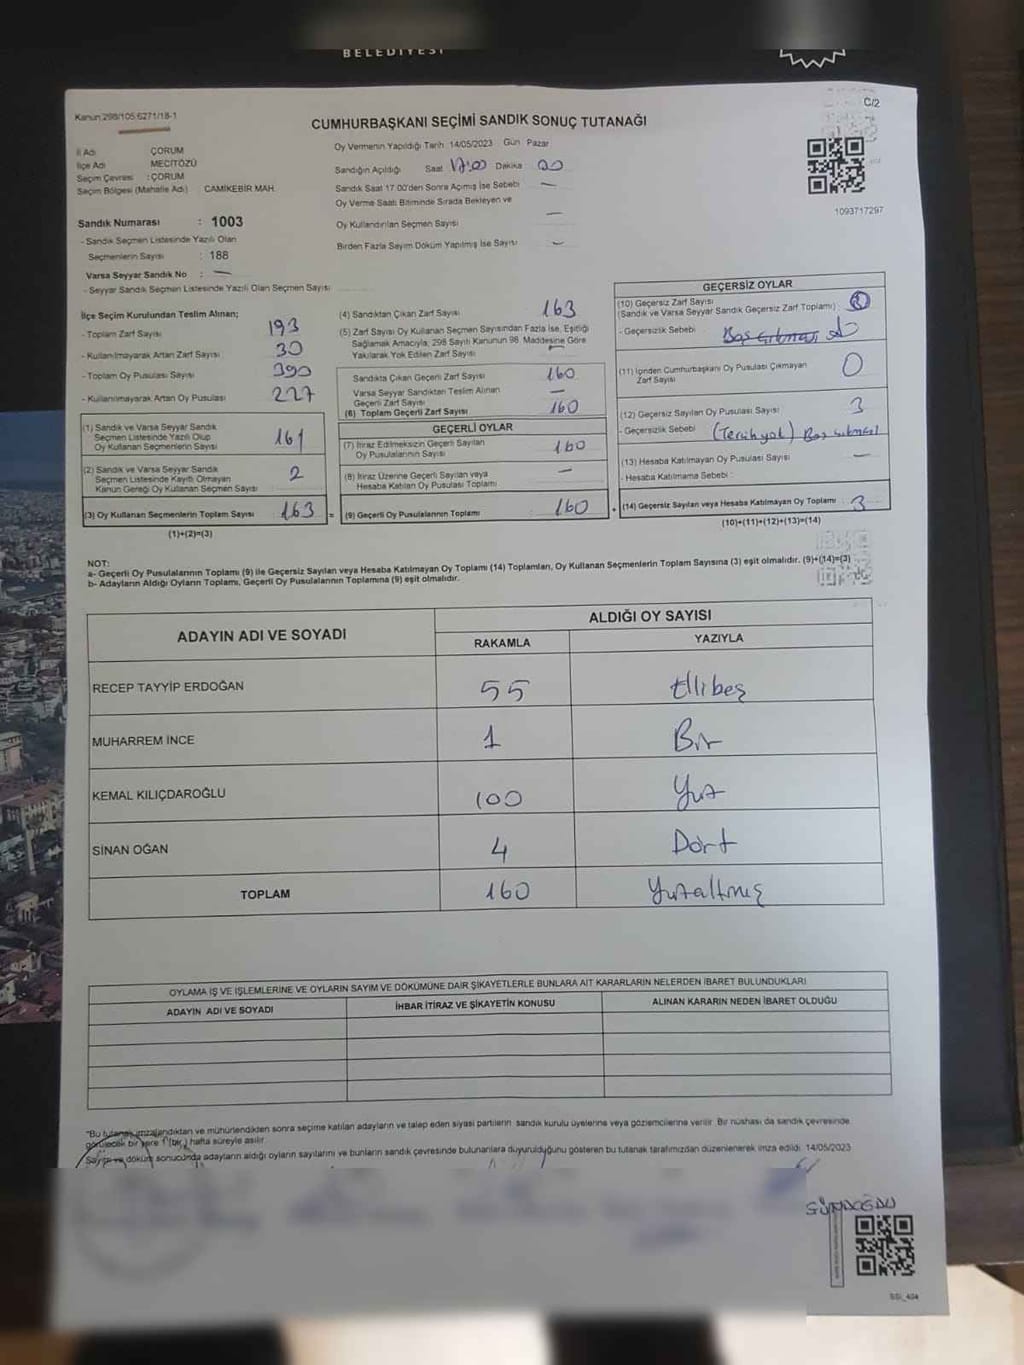 BELEDİYESİ
Kanun:298/105.6271/18-1
C/2
CUMHURBAŞKANI SEÇİMİ SANDIK SONUÇ TUTANAĞI
İl Adı ÇORUM
İlçe Adı MECİTÖZÜ
Seçim Çevresi : ÇORUM
Seçim Bölgesi (Mahalle Adı) CAMİKEBİR MAH.
Sandık Numarası : 1003
- Sandık Seçmen Listesinde Yazılı Olan
Seçmenlerin Sayısı : 188
Varsa Seyyar Sandık No : —
- Seyyar Sandık Seçmen Listesinde Yazılı Olan Seçmen Sayısı
Oy Vermenin Yapıldığı Tarih 14/05/2023 Gün Pazar
Sandığın Açıldığı Saat 17:00 Dakika 00
Sandık Saat 17.00'den Sonra Açımış İse Sebebi —
Oy Verme Saati Bitiminde Sırada Bekleyen ve
Oy Kullandırılan Seçmen Sayısı —
Birden Fazla Sayım Döküm Yapılmış İse Sayısı —
1093717297
İlçe Seçim Kurulundan Teslim Alınan;
- Toplam Zarf Sayısı 193
- Kullanılmayarak Artan Zarf Sayısı 30
- Toplam Oy Pusulası Sayısı 390
- Kullanılmayarak Artan Oy Pusulası 227
(1) Sandık ve Varsa Seyyar Sandık
Seçmen Listesinde Yazılı Olup
Oy Kullanan Seçmenlerin Sayısı 161
(2) Sandık ve Varsa Seyyar Sandık
Seçmen Listesinde Kayıtlı Olmayan
Kanun Gereği Oy Kullanan Seçmen Sayısı 2
(3) Oy Kullanan Seçmenlerin Toplam Sayısı 163 =
(1)+(2)=(3)
(4) Sandıktan Çıkan Zarf Sayısı 163
(5) Zarf Sayısı Oy Kullanan Seçmen Sayısından Fazla İse, Eşitliği
Sağlamak Amacıyla, 298 Sayılı Kanunun 98. Maddesine Göre
Yakılarak Yok Edilen Zarf Sayısı —
Sandıkta Çıkan Geçerli Zarf Sayısı 160
Varsa Seyyar Sandıktan Teslim Alınan
Geçerli Zarf Sayısı —
(6) Toplam Geçerli Zarf Sayısı 160
GEÇERLİ OYLAR
(7) İtiraz Edilmeksizin Geçerli Sayılan
Oy Pusulalarının Sayısı 160
(8) İtiraz Üzerine Geçerli Sayılan veya
Hesaba Katılan Oy Pusulası Toplamı —
(9) Geçerli Oy Pusulalarının Toplamı : 160 +
GEÇERSİZ OYLAR
(10) Geçersiz Zarf Sayısı
(Sandık ve Varsa Seyyar Sandık Geçersiz Zarf Toplamı)
- Geçersizlik Sebebi
(11) İçinden Cumhurbaşkanı Oy Pusulası Çıkmayan
Zarf Sayısı 0
(12) Geçersiz Sayılan Oy Pusulası Sayısı 3
- Geçersizlik Sebebi (Tercih yok) Boş çıkması
(13) Hesaba Katılmayan Oy Pusulası Sayısı —
- Hesaba Katılmama Sebebi :
(14) Geçersiz Sayılan veya Hesaba Katılmayan Oy Toplamı : 3
(10)+(11)+(12)+(13)=(14)
NOT:
a- Geçerli Oy Pusulalarının Toplamı (9) ile Geçersiz Sayılan veya Hesaba Katılmayan Oy Toplamı (14) Toplamları, Oy Kullanan Seçmenlerin Toplam Sayısına (3) eşit olmalıdır. (9)+(14)=(3)
b- Adayların Aldığı Oyların Toplamı, Geçerli Oy Pusulalarının Toplamına (9) eşit olmalıdır.
ADAYIN ADI VE SOYADI ALDIĞI OY SAYISI
RAKAMLA YAZIYLA
RECEP TAYYİP ERDOĞAN 55 Ellibeş
MUHARREM İNCE 1 Bir
KEMAL KILIÇDAROĞLU 100 Yüz
SİNAN OĞAN 4 Dört
TOPLAM 160 Yüzaltmış
OYLAMA İŞ VE İŞLEMLERİNE VE OYLARIN SAYIM VE DÖKÜMÜNE DAİR ŞİKAYETLERLE BUNLARA AİT KARARLARIN NELERDEN İBARET BULUNDUKLARI
ADAYIN ADI VE SOYADI İHBAR İTİRAZ VE ŞİKAYETİN KONUSU ALINAN KARARIN NEDEN İBARET OLDUĞU
"Bu tutanak imzalandıktan ve mühürlendikten sonra seçime katılan adayların ve talep eden siyasi partilerin sandık kurulu üyelerine veya gözlemcilerine verilir. Bir nüshası da sandık çevresinde
görülecek bir yere 1 (bir) hafta süreyle asılır.
Sayım ve döküm sonucunda adayların aldığı oyların sayılarını ve bunların sandık çevresinde bulunanlara duyurulduğunu gösteren bu tutanak tarafımızdan düzenlenerek imza edildi. 14/05/2023
GÜNDOĞDU